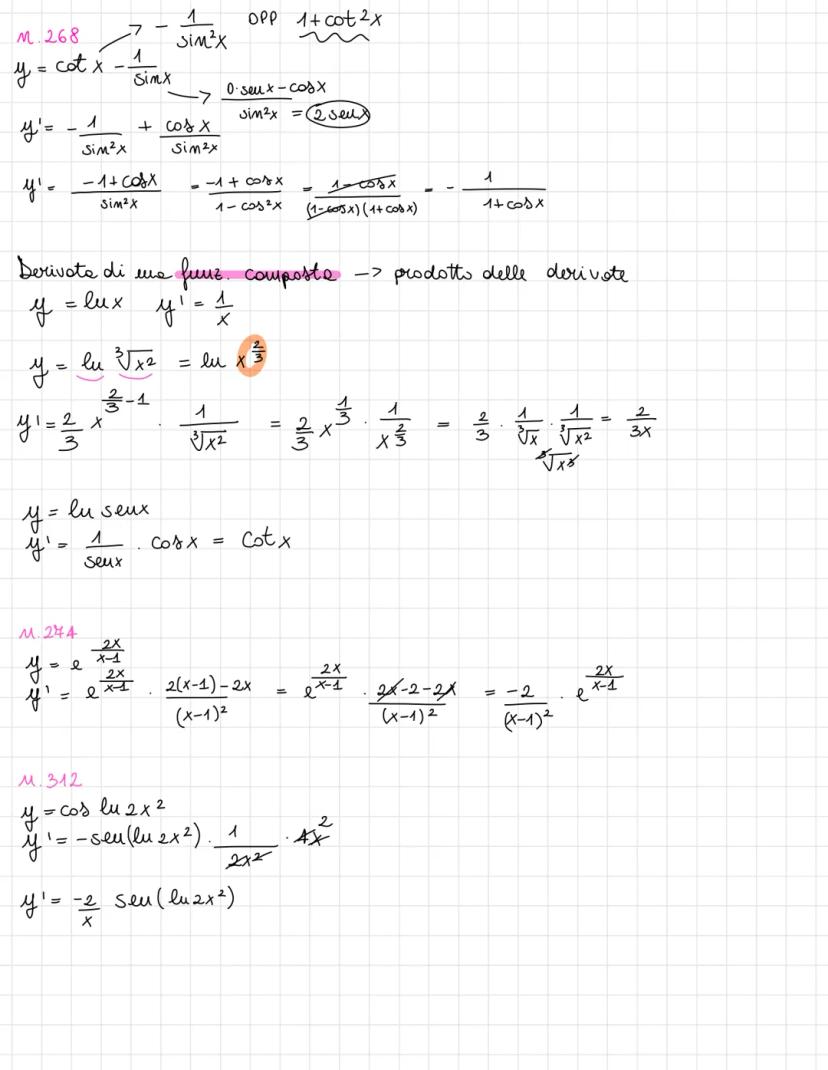 n.268 → - 1/sin²x OPP 1+cot²x
y = cot x - 1/sinx → (0·senx-cosx)/sin²x = 2senx
y' = - 1/sin²x + cosx/sin²x
y' = (-1+cosx)/sin²x = (-1+cosx)/(1-cos²x) = (1-cosx)/((1-cosx)(1+cosx)) = - 1/(1+cosx)
Derivata di una funz. composta -> prodotto delle derivate
y = lnx y' = 1/x
y = ln ∛x² = ln x^(2/3)
y' = 2/3 x^(2/3-1) · 1/∛x² = 2/3 x^(1/3) · 1/x^(2/3) = 2/3 · 1/∛x · 1/∛x² = 2/3x
∛x³
y = ln senx
y' = 1/senx · cosx = cotx
n.274
y = e^(2x/(x-1))
y' = e^(2x/(x-1)) · (2(x-1)-2x)/(x-1)² = e^(2x/(x-1)) · (2x-2-2x)/(x-1)² = -2/(x-1)² · e^(2x/(x-1))
n.312
y = cos ln2x²
y' = -sen(ln2x²) · 1/2x² · 4x 2
y' = -2/x sen(ln2x²)